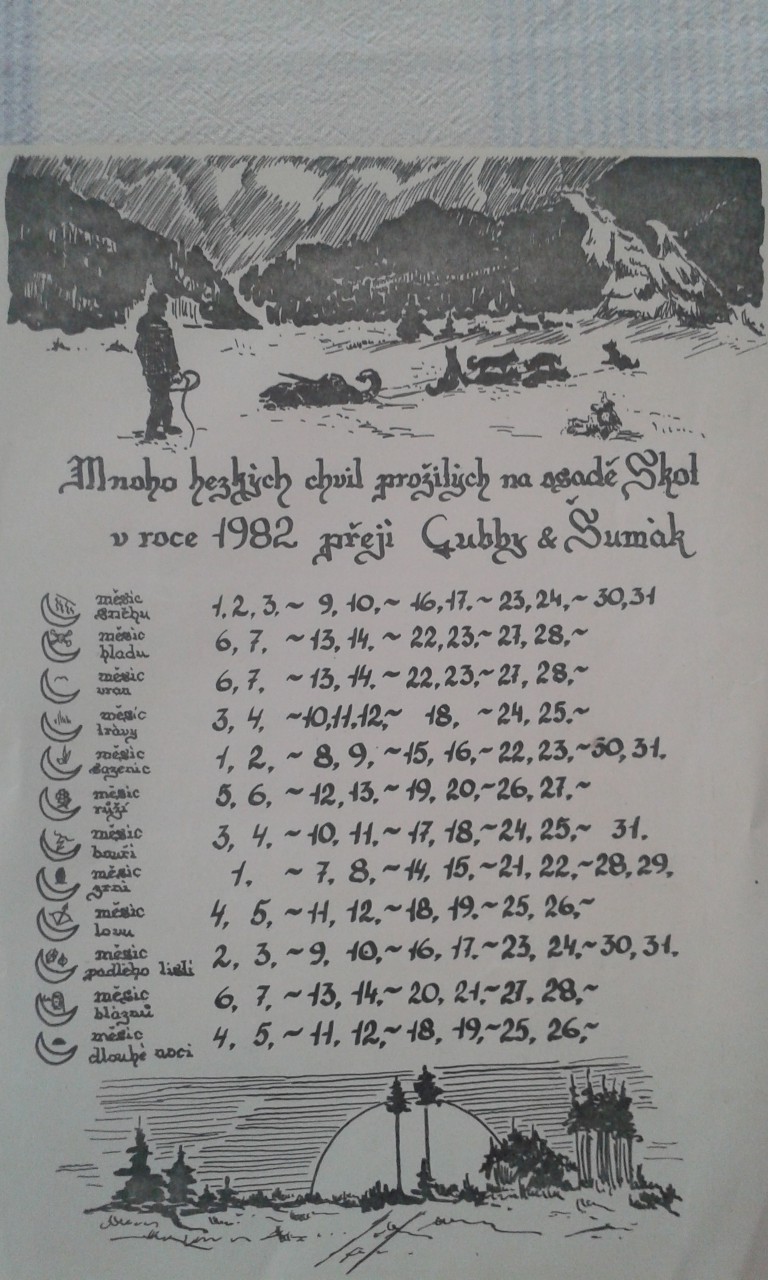 Mnoho hezkých chvil prožilých na osadě Skol
v roce 1982 přeji Gubby & Šumák
měsíc sněhu 1, 2, 3. ~ 9, 10, ~ 16, 17. ~ 23, 24, ~ 30, 31
měsíc hladu 6, 7, ~ 13, 14. ~ 22, 23. ~ 27, 28, ~
měsíc vran 6, 7, ~ 13, 14. ~ 22, 23, ~ 27, 28, ~
měsíc trávy 3, 4, ~ 10, 11, 12, ~ 18, ~ 24, 25. ~
měsíc sazenic 1, 2, ~ 8, 9, ~ 15, 16, ~ 22, 23, ~ 30, 31.
měsíc růží 5, 6, ~ 12, 13. ~ 19, 20, ~ 26, 27. ~
měsíc bouří 3, 4. ~ 10, 11. ~ 17, 18, ~ 24, 25, ~ 31.
měsíc zrní 1, ~ 7, 8, ~ 14, 15, ~ 21, 22, ~ 28, 29.
měsíc lovu 4, 5, ~ 11, 12, ~ 18, 19. ~ 25, 26, ~
měsíc padlého listí 2, 3. ~ 9, 10, ~ 16, 17. ~ 23, 24. ~ 30, 31.
měsíc bláznů 6, 7. ~ 13, 14. ~ 20, 21. ~ 27, 28, ~
měsíc dlouhé noci 4, 5, ~ 11, 12, ~ 18, 19, ~ 25, 26, ~